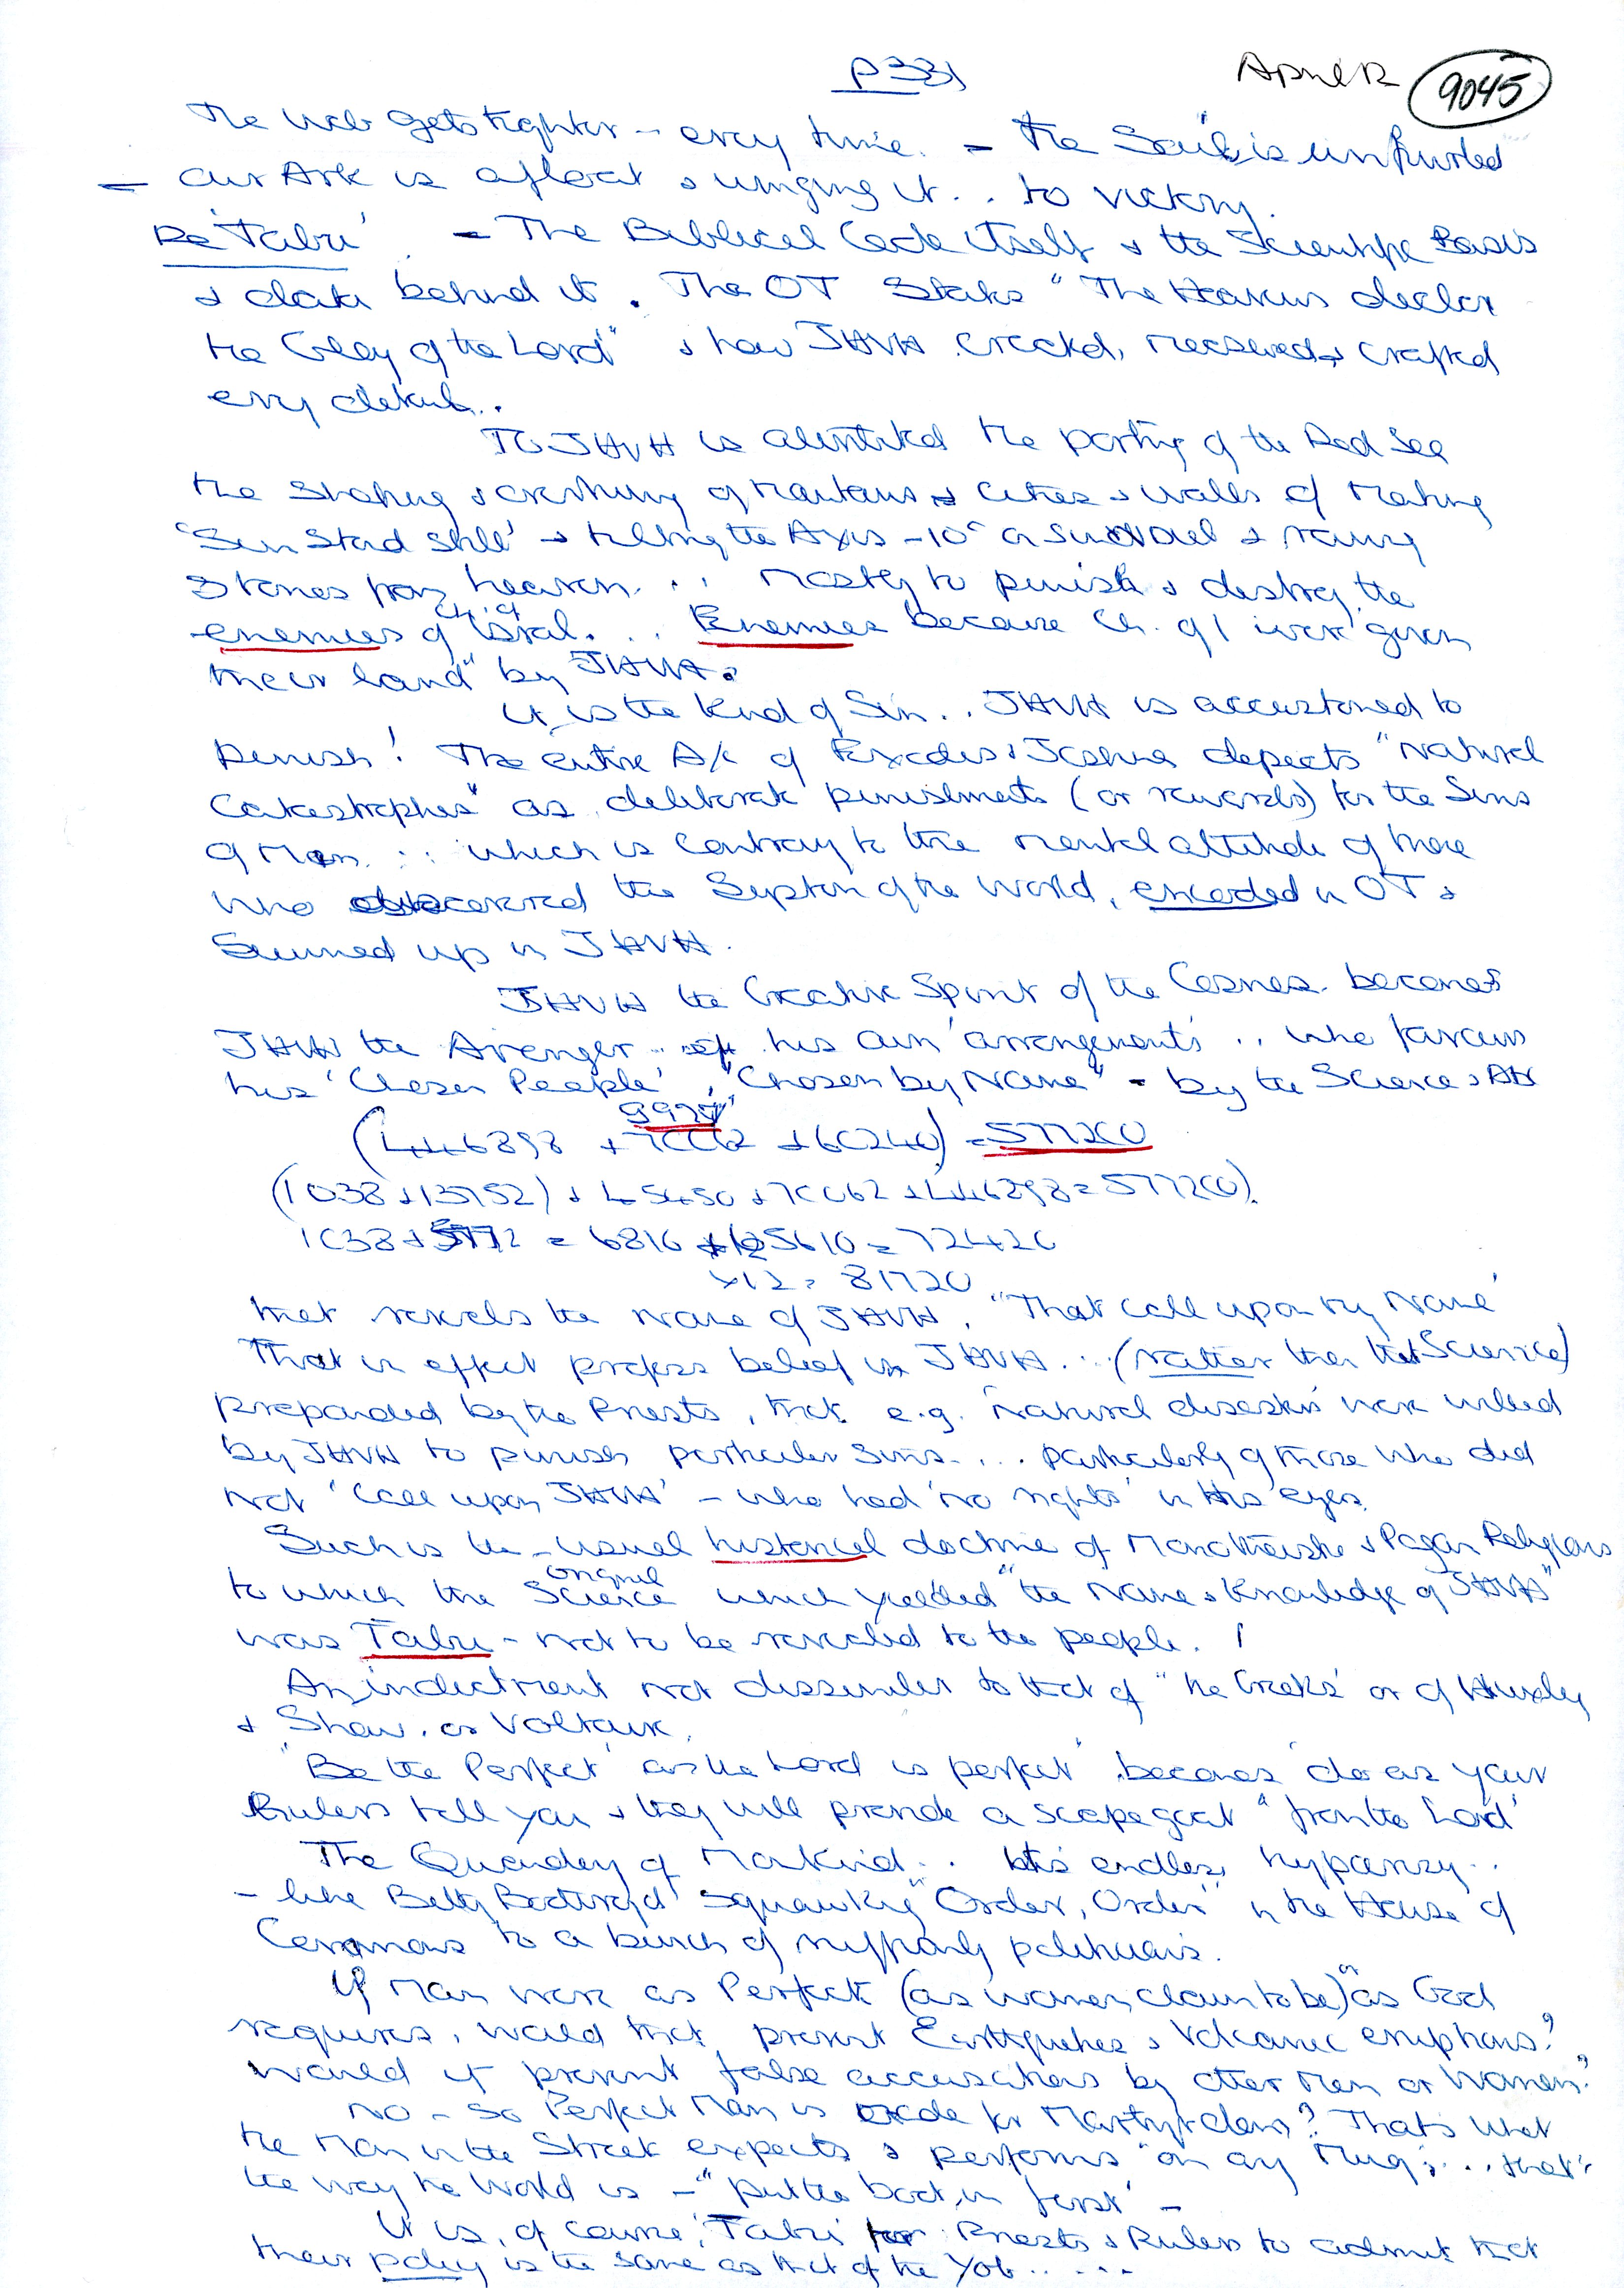 p331 April 12 9045
The web gets tighter - every time. - The Sail is unfurled
- our Ark is afloat & winging it .. to victory.
Re 'Tabu' - The Biblical Code itself & the Scientific Basis
& data behind it. The OT States "The Heavens declare
the Glory of the Lord" & how JHVH created, measured & crafted
every detail..
To JHVH is attributed the parting of the Red Sea
the shaking & crashing of Mountains & Cities & walls of making
'Sun Stand still' & tilting the Axis -10° on Sundial & raining
Stones from heaven... mostly to punish & destroy the
enemies of Ch. of Israel. .. Enemies because Ch. of I were 'given
their land" by JHVH.
It is the kind of Sin.. JHVH is accustomed to
punish! The entire A/c of Exodus & Joshua depicts "Natural
Catastrophes" as deliberate punishments (or rewards) for the Sins
of Man. .. which is contrary to the mental attitude of those
who discovered the System of the World, encoded in OT &
Summed up in JHVH.
JHVH the Creative Spirit of the Cosmos becomes
JHVH the Avenger .. of his own 'arrangements' .. who favours
his 'Chosen People', "Chosen by Name" - by the Science & Art
9927
(446898 + 70062 + 60240) = 577200
(1038 + 13752) + 45450 + 70062 + 446898 = 577200).
1038 + 5772 = 6810 + 65610 = 72420
x12 = 81720
that reveals the Name of JHVH, "That call upon my Name'
That in effect profess belief in JHVH... (rather than the Science)
propounded by the Priests, that e.g. 'natural disasters' were willed
by JHVH to punish particular sins. ... particularly of those who did
not 'Call upon JHVH' - who had 'no rights' in His eyes.
Such is the usual historical doctrine of Monotheistic & Pagan Religions
to which the original Science which yielded "the Name & Knowledge of JHVH"
was Tabu - not to be revealed to the people. !
An indictment not dissimilar to that of "the Greeks' or of Huxley
& Shaw, or Voltaire.
'Be the Perfect' as the Lord is perfect' becomes 'do as your
Rulers tell you & they will provide a scapegoat "from the Lord'
The Quandary of Mankind .. his endless hypocrisy ..
- like Betty Boothroyd squawking "Order, Order" in the House of
Commons to a bunch of ruffianly politicians.
If Man were as Perfect (as women claim to be)" as God
requires, would that prevent Earthquakes & Volcanic eruptions?
Would it prevent false accusations by other Men or Women?
No - so Perfect Man is made for Martyrdom? That's what
the Man in the Street expects & performs 'on any Mug'; ... that's
the way the World is - "put the boot in first' -
It is, of course, 'Tabu' for Priests & Rulers to admit that
their policy is the same as that of the Yob .....